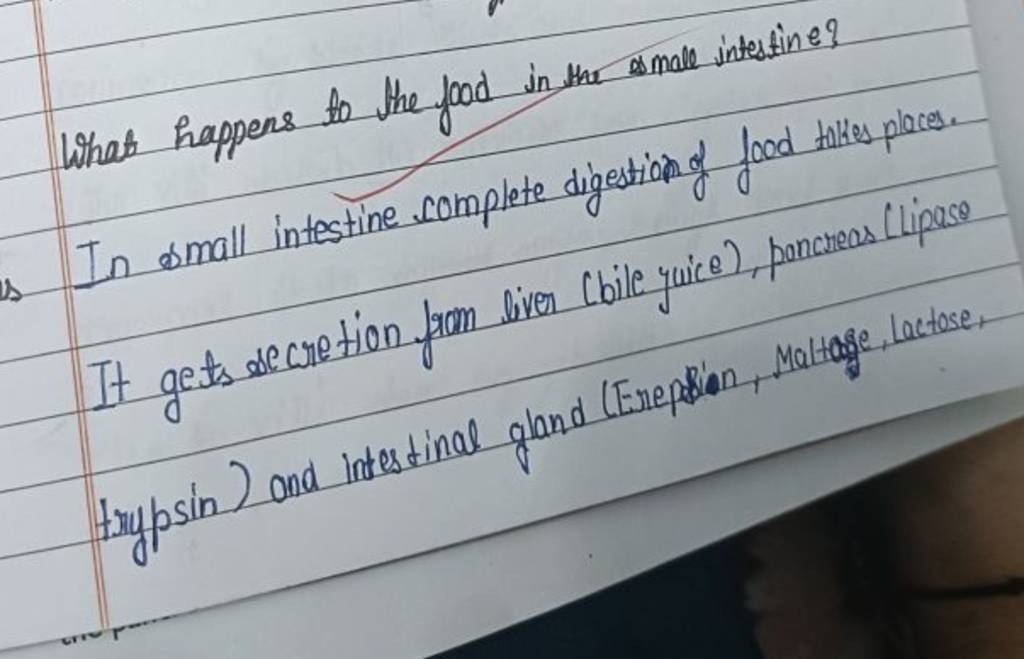 What happens to the food in the small intestine?
In small intestine complete digestion of food takes places.
It gets secretion from liver (bile juice), pancreas (lipase
trypsin) and intestinal gland (Erepsion, Maltage, Lactose,